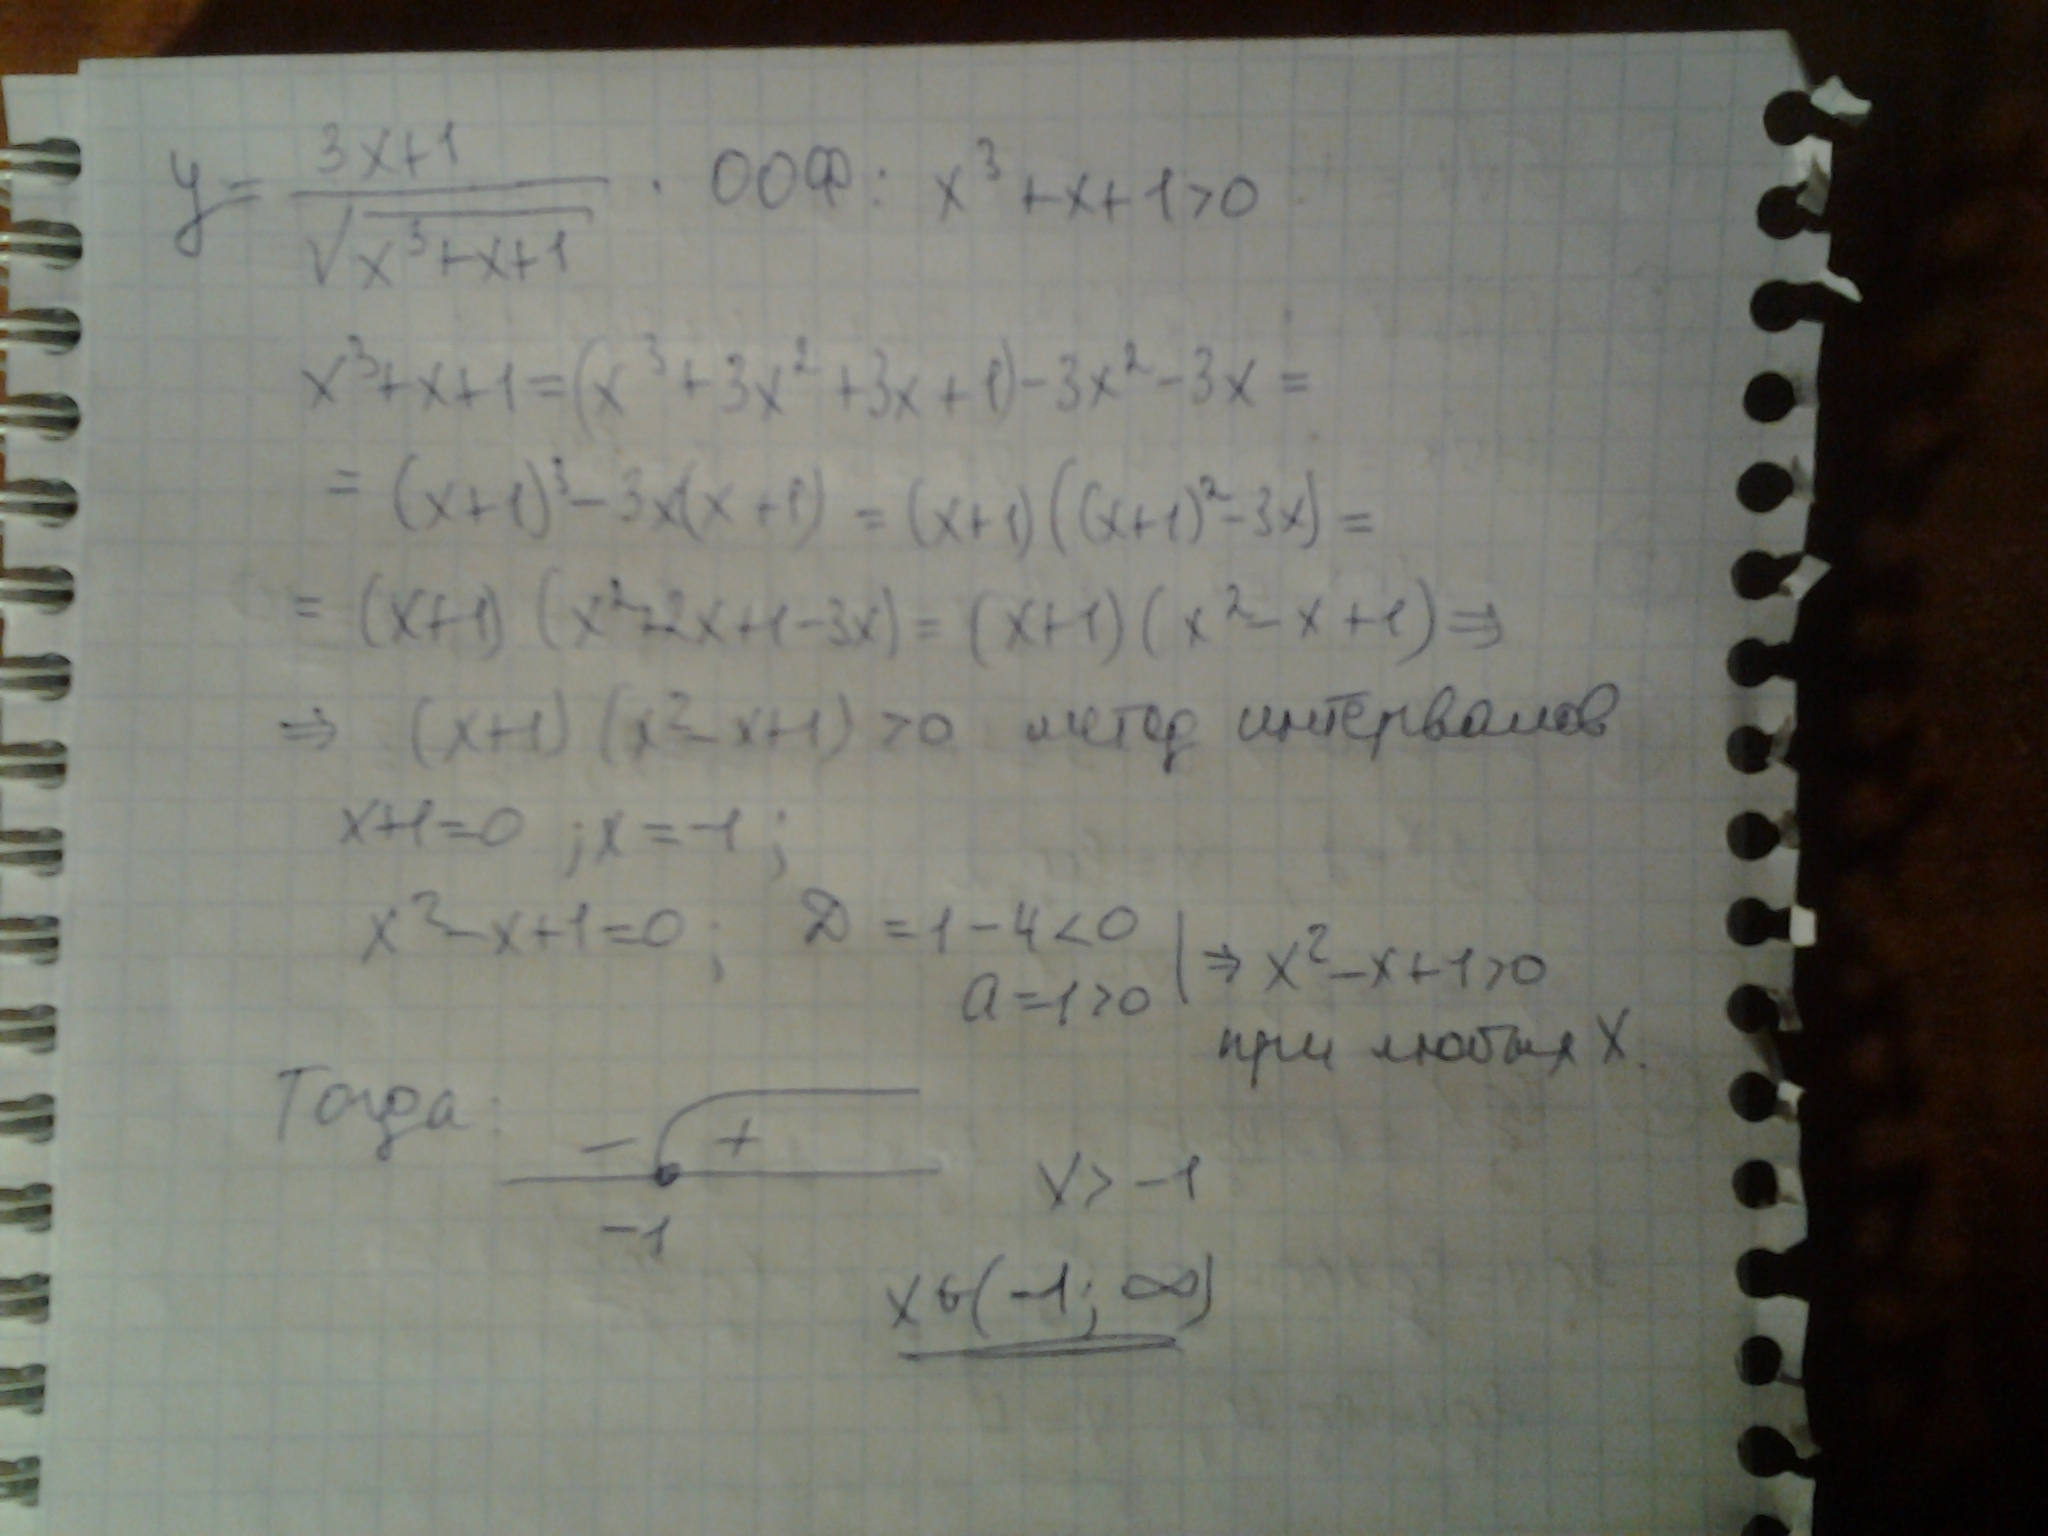 y = (3x+1)/√(x³+x+1) . ООФ: x³+x+1>0
x³+x+1=(x³+3x²+3x+1)-3x²-3x=
= (x+1)³-3x(x+1) = (x+1)((x+1)²-3x)=
= (x+1) (x²+2x+1-3x) = (x+1)(x²-x+1) ⇒
⇒ (x+1) (x²-x+1) >0 метод интервалов
x+1=0 ; x=-1 ;
x²-x+1=0 ; D =1-4<0
a=1>0 | ⇒ x²-x+1>0
при любых x.
Тогда:
- +
-1
x> -1
x∈(-1; ∞)